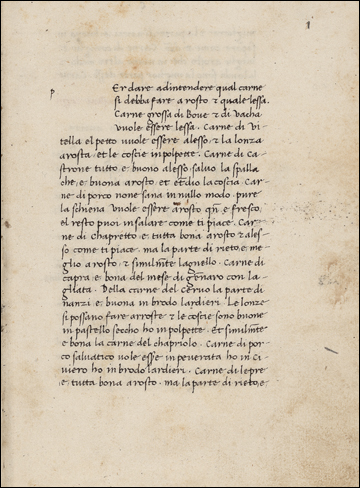 1
p Er dare adintendere qual carne
si debba fare arosto & quale lessa.
Carne grossa di Boue & di Vacha
vuole essere lessa. Carne di Vi
tella el petto vuole essere alesso, & la lonza
arosta, et le coscie in polpette. Carne di ca
strone tutto e buono alesso, saluo la spalla
che, e buona arosto et etdio la coscia. Car
ne di porco none sana in nullo modo pure
la schiena vuole essere arosto qn e fresco,
el resto puoi insalare come ti piace. Car
ne di chapretto e tutta bona arosto & ales
so come ti piace ma la parte di rieto, e, me
glio arosto, & similmte lagnello. Carne di
capra e bona del mese di gennaro con la
gliata. Della carne del Ceruo la parte di
nanzi e buona in brodo lardieri. Le lonze
si possano fare arroste, & le coscie sono buone
in pastello seccho ho in polpette. Et similmte
e bona la carne del chapriolo. Carne di por
co saluatico vole esse in peuerata ho in ci
uiero ho in brodo lardieri. Carne di lepre
e tutta bona arosto. ma la parte di rieto, e